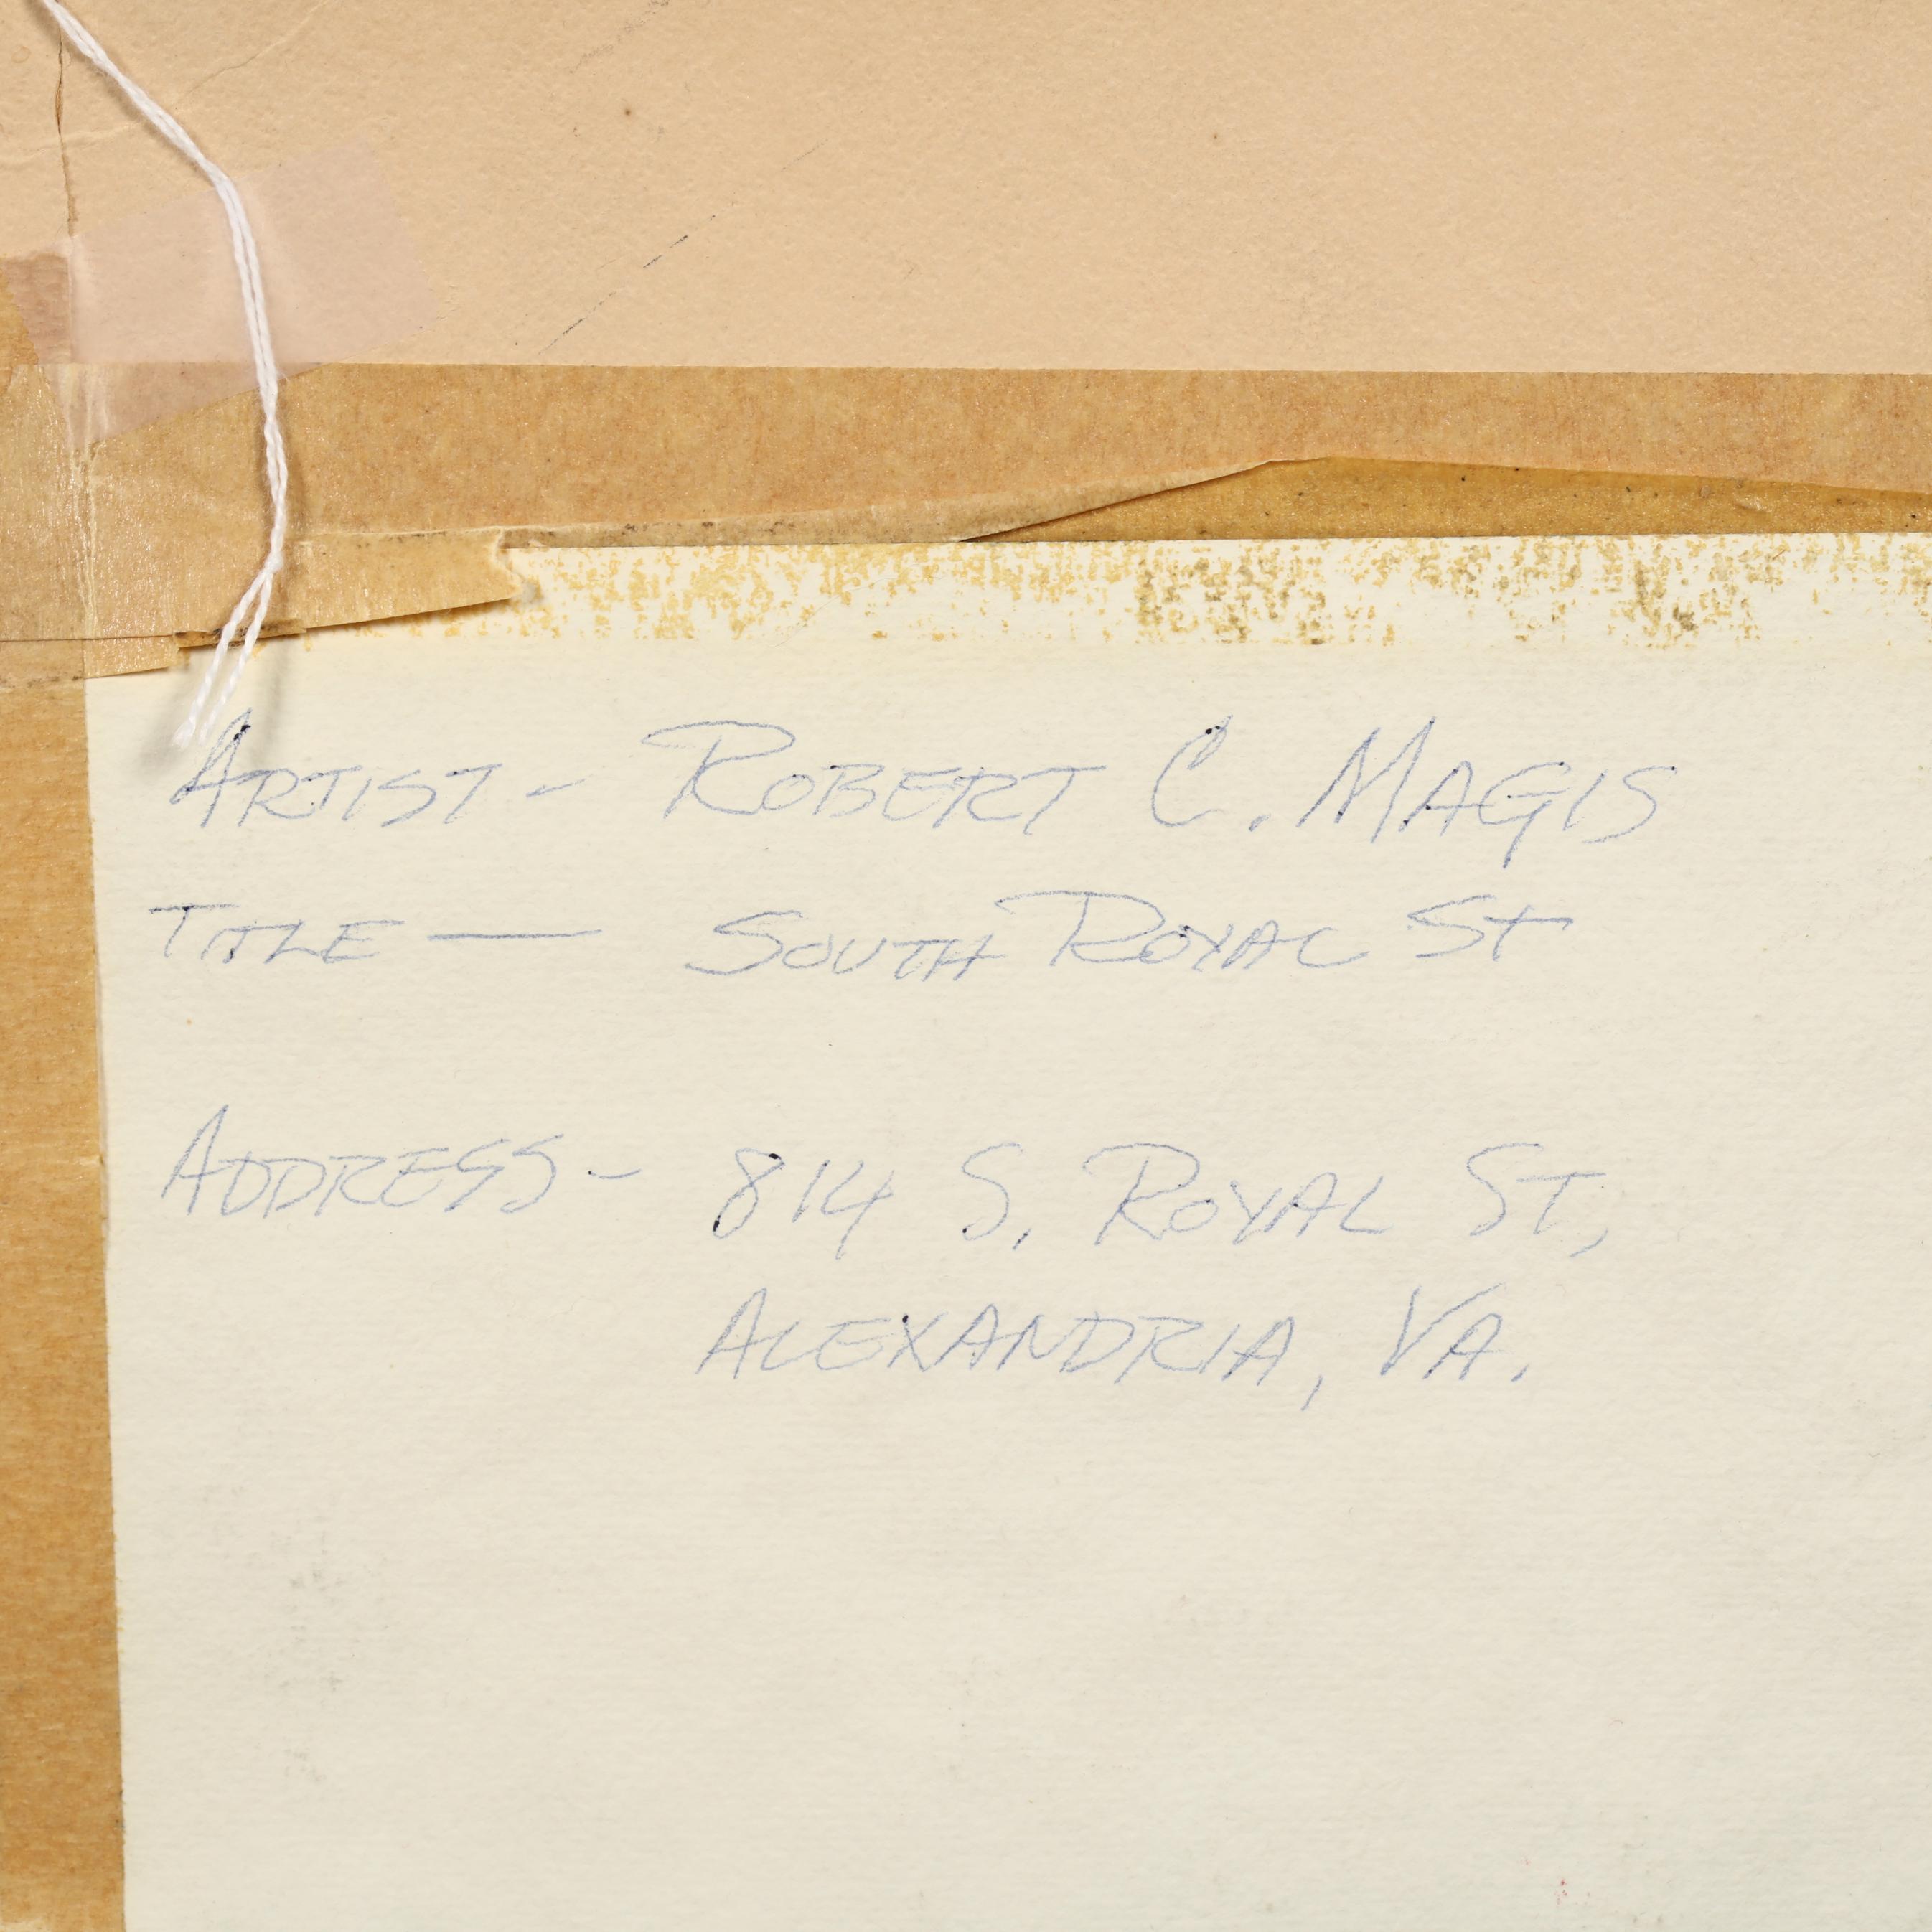 ARTIST - ROBERT C. MAGIS
TITLE — SOUTH ROYAL ST
ADDRESS - 814 S. ROYAL ST,
ALEXANDRIA, VA.